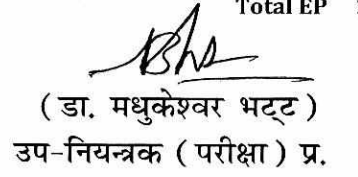 Total EP
( डा. मधुकेश्वर भट्ट )
उप-नियन्त्रक ( परीक्षा ) प्र.